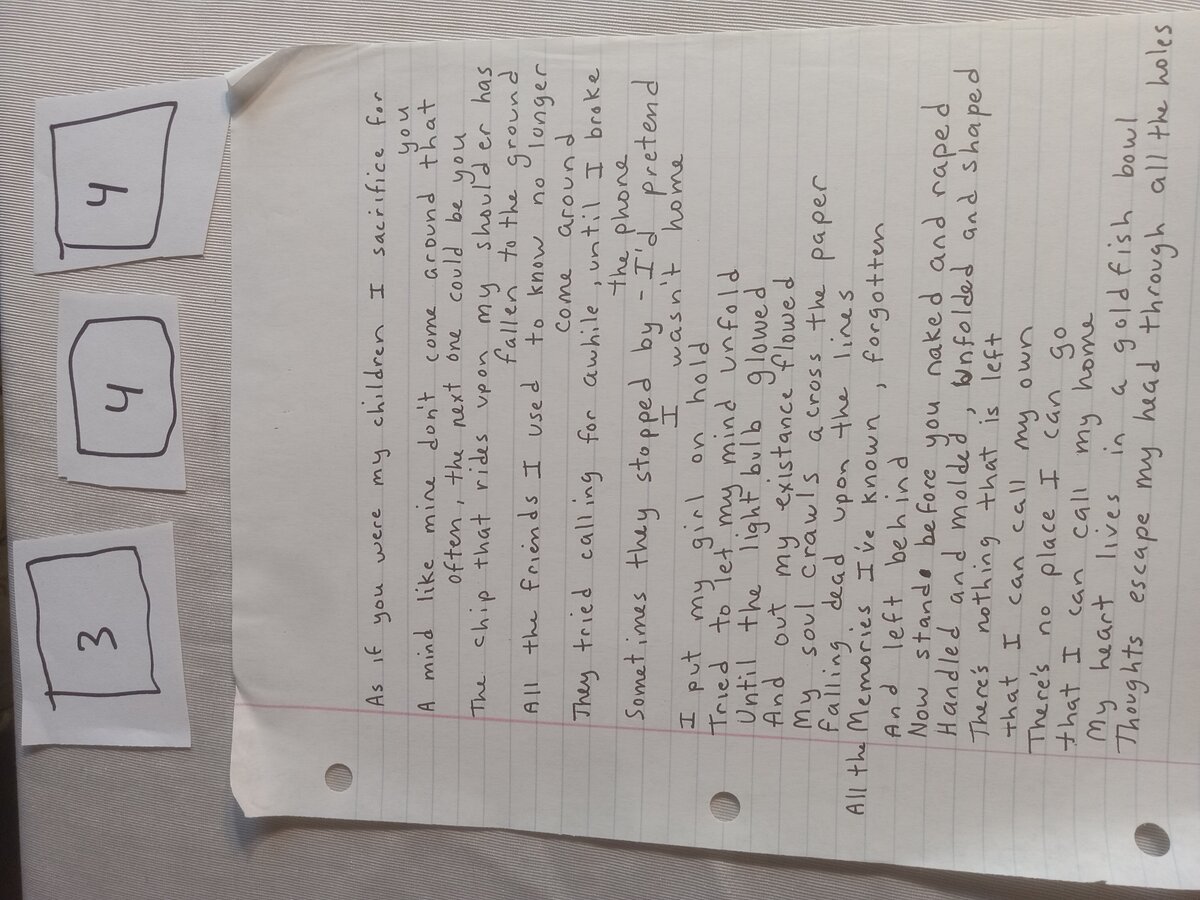 3
4
4
As if you were my children I sacrifice for
you
A mind like mine don't come around that
often, the next one could be you
The chip that rides upon my shoulder has
fallen to the ground
All the friends I used to know no longer
come around
They tried calling for awhile, until I broke
the phone
Sometimes they stopped by - I'd pretend
I wasn't home
I put my girl on hold
Tried to let my mind unfold
Until the light bulb glowed
And out my existance flowed
My soul crawls across the paper
falling dead upon the lines
All the Memories I've known, forgotten
And left behind
Now stand before you naked and raped
Handled and molded, unfolded and shaped
There's nothing that is left
that I can call my own
There's no place I can go
that I can call my home
My heart lives in a goldfish bowl
Thoughts escape my head through all the holes